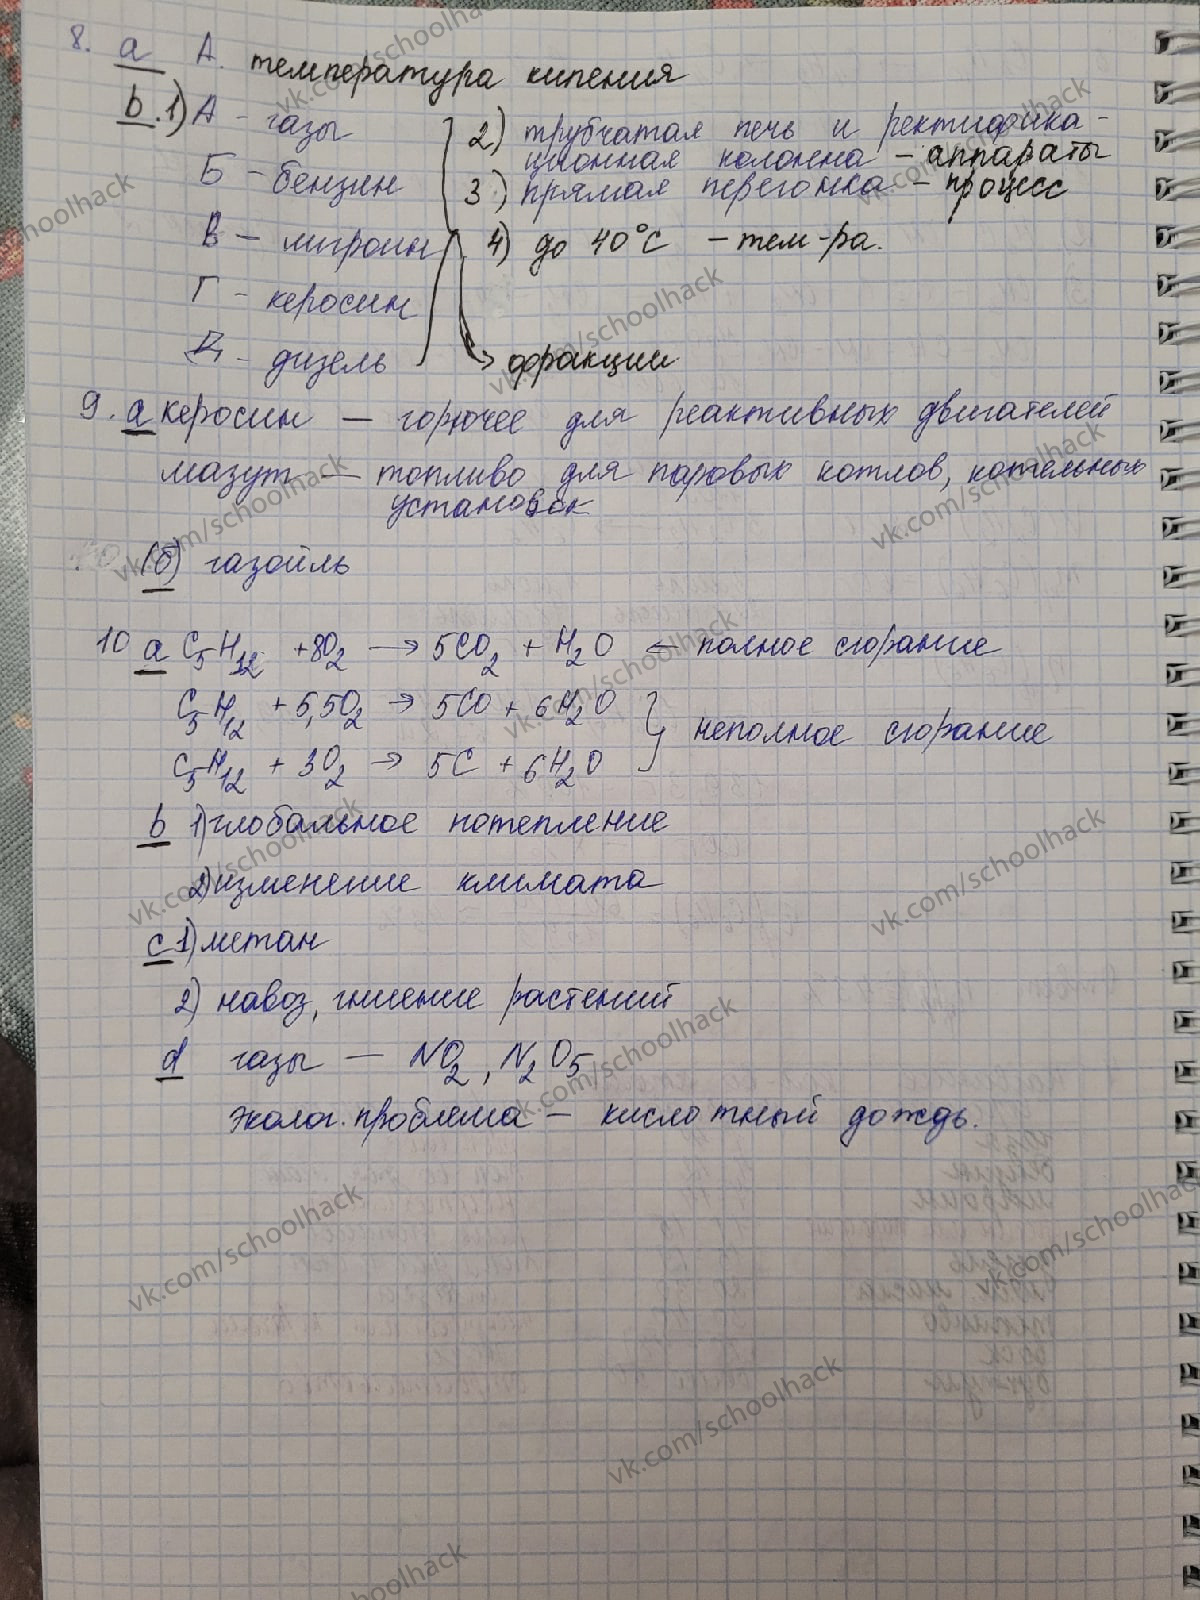 8. a А. температура кипения
b.1) А - газы
Б - бензин
В - лигроин
Г - керосин
Д - дизель
2) трубчатая печь и ректифика-
ционная колонна - аппараты
3) прямая перегонка - процесс
4) до 40°C - тем-ра.
фракции
9. a керосин — горючее для реактивных двигателей
мазут — топливо для паровых котлов, котельных
установок
(б) газойль
10 a C5H12 + 8O2 → 5CO2 + H2O ← полное сгорание
C5H12 + 5,5O2 → 5CO + 6H2O
C5H12 + 3O2 → 5C + 6H2O
неполное сгорание
b 1) глобальное потепление
2) изменение климата
c 1) метан
2) навоз, гниение растений
d газы — NO2, N2O5
эколог. проблема — кислотный дождь.
vk.com/schoolhack